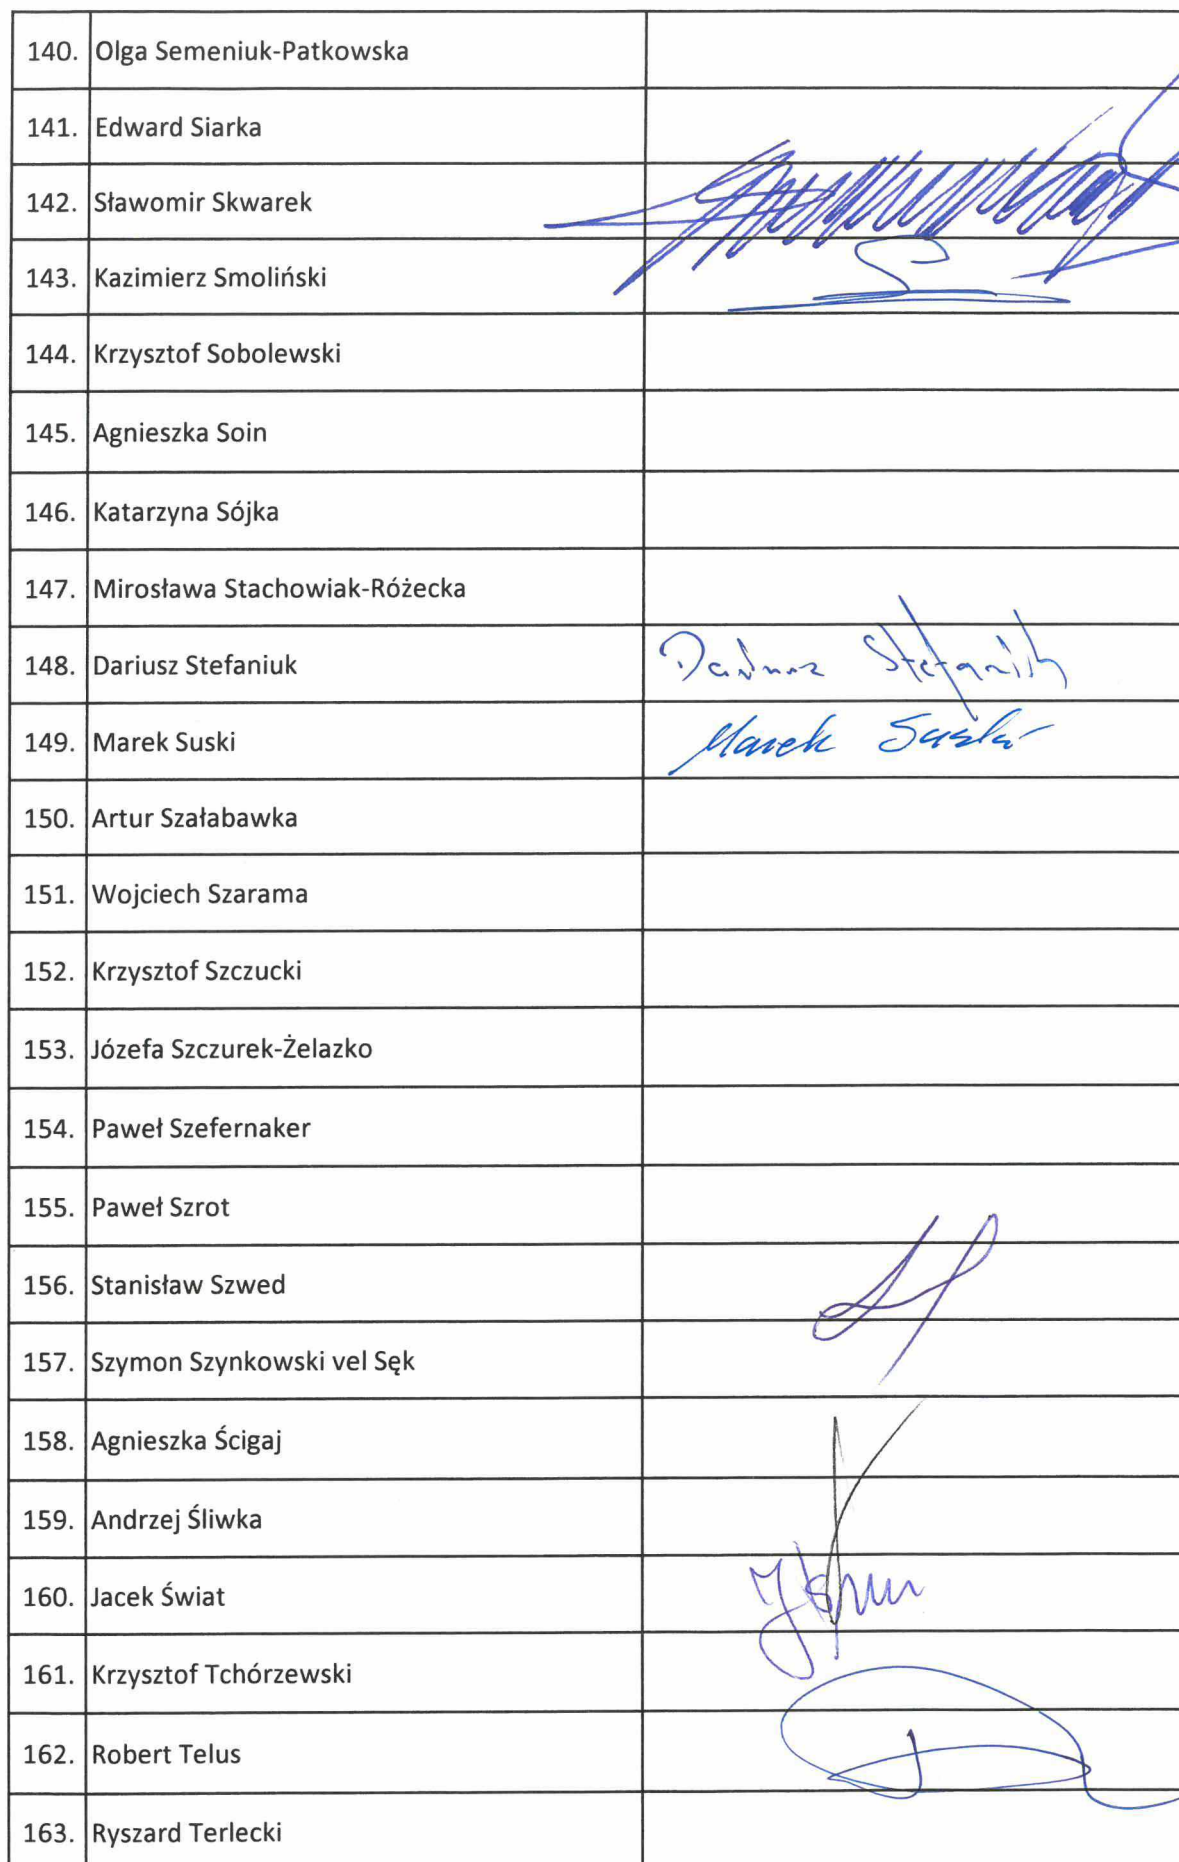 140. Olga Semeniuk-Patkowska
141. Edward Siarka
142. Sławomir Skwarek
143. Kazimierz Smoliński
144. Krzysztof Sobolewski
145. Agnieszka Soin
146. Katarzyna Sójka
147. Mirosława Stachowiak-Różecka
148. Dariusz Stefaniuk Dariusz Stefaniuk
149. Marek Suski Marek Suski
150. Artur Szałabawka
151. Wojciech Szarama
152. Krzysztof Szczucki
153. Józefa Szczurek-Żelazko
154. Paweł Szefernaker
155. Paweł Szrot
156. Stanisław Szwed
157. Szymon Szynkowski vel Sęk
158. Agnieszka Ścigaj
159. Andrzej Śliwka
160. Jacek Świat
161. Krzysztof Tchórzewski
162. Robert Telus
163. Ryszard Terlecki